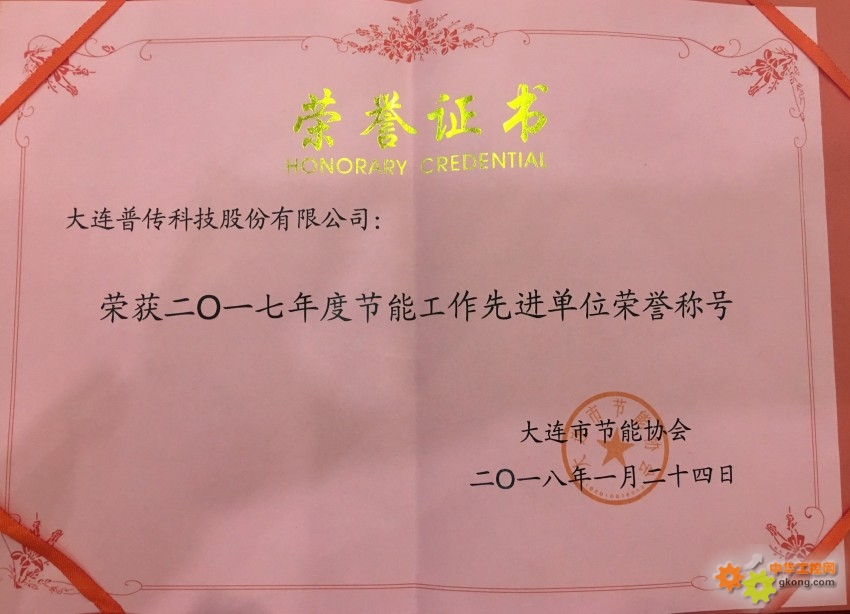 荣誉证书
HONORARY CREDENTIAL
大连普传科技股份有限公司：
荣获二〇一七年度节能工作先进单位荣誉称号
大连市节能协会
大连市节能协会
二〇一八年一月二十四日
中华工控网
gkong.com